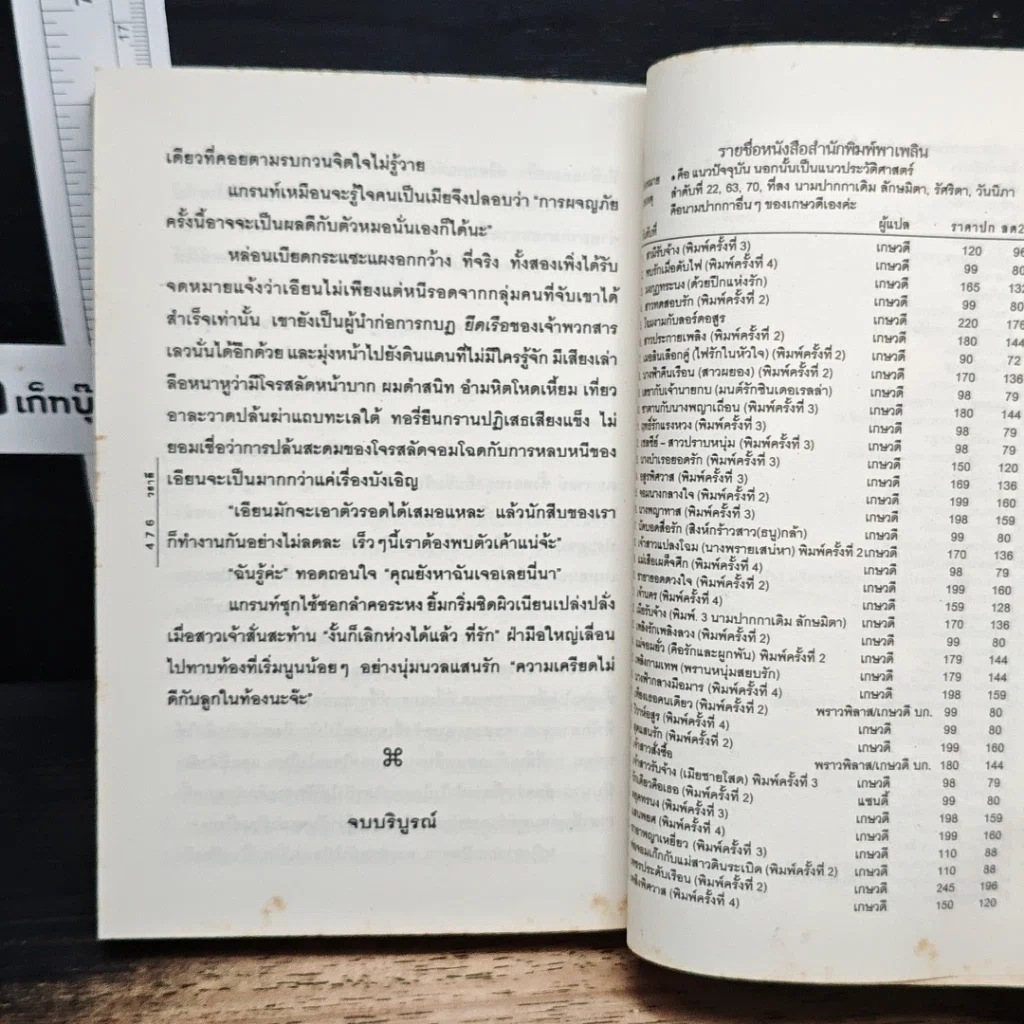 17
เก็ทบุ๊
เดียวที่คอยตามรบกวนจิตใจไม่รู้วาย
แกรนท์เหมือนจะรู้ใจคนเป็นเมียจึงปลอบว่า "การผจญภัย
ครั้งนี้อาจจะเป็นผลดีกับตัวหมอนั่นเองก็ได้นะ"
หล่อนเบียดกระแซะแผงอกกว้าง ที่จริง ทั้งสองเพิ่งได้รับ
จดหมายแจ้งว่าเอียนไม่เพียงแต่หนีรอดจากกลุ่มคนที่จับเขาได้
สำเร็จเท่านั้น เขายังเป็นผู้นำก่อการกบฏ ยึดเรือของเจ้าพวกสาร
เลวนั่นได้อีกด้วย และมุ่งหน้าไปยังดินแดนที่ไม่มีใครรู้จัก มีเสียงเล่า
ลือหนาหูว่ามีโจรสลัดหน้าบาก ผมดำสนิท อำมหิตโหดเหี้ยม เที่ยว
อาละวาดปล้นฆ่าแถบทะเลใต้ ทอรี่ยืนกรานปฏิเสธเสียงแข็ง ไม่
ยอมเชื่อว่าการปล้นสะดมของโจรสลัดจอมโฉดกับการหลบหนีของ
เอียนจะเป็นมากกว่าแค่เรื่องบังเอิญ
"เอียนมักจะเอาตัวรอดได้เสมอแหละ แล้วนักสืบของเรา
ก็ทำงานกันอย่างไม่ลดละ เร็วๆนี้เราต้องพบตัวเค้าแน่จ้ะ"
"ฉันรู้ค่ะ" ทอดถอนใจ "คุณยังหาฉันเจอเลยนี่นา"
แกรนท์ซุกไซ้ซอกลำคอระหง ยิ้มกริ่มชิดผิวเนียนเปล่งปลั่ง
เมื่อสาวเจ้าสั่นสะท้าน "งั้นก็เลิกห่วงได้แล้ว ที่รัก" ฝ่ามือใหญ่เลื่อน
ไปทาบท้องที่เริ่มนูนน้อยๆ อย่างนุ่มนวลแสนรัก "ความเครียดไม่
ดีกับลูกในท้องนะจ๊ะ"
⌘
จบบริบูรณ์
476 วยาธิ
รายชื่อหนังสือสำนักพิมพ์พาเพลิน
• คือ แนวปัจจุบัน นอกนั้นเป็นแนวประวัติศาสตร์
ลำดับที่ 22, 63, 70, ที่ลง นามปากกาเดิม ลักษมิตา, รัศริตา, วันนิภา
คือนามปากกาอื่นๆ ของเกษวดีเองค่ะ
ผู้แปล ราคาปก ลด2
(พิมพ์ครั้งที่ 3) เกษวดี 120 96
พบรักเมื่อดับไฟ (พิมพ์ครั้งที่ 4) เกษวดี 99 80
(ด้วยปีกแห่งรัก) เกษวดี 165 132
สาวทดสอบรัก (พิมพ์ครั้งที่ 2) เกษวดี 99 80
โฉมงามกับลอร์ดอสูร เกษวดี 220 176
สาวประกายเพลิง (พิมพ์ครั้งที่ 2) เกษวดี 180 144
(ไฟรักในหัวใจ) (พิมพ์ครั้งที่ 2) เกษวดี 90 72
นางฟ้าคืนเรือน (สาวผยอง) (พิมพ์ครั้งที่ 2) เกษวดี 170 136
เจ้านายกบ (มนต์รักซินเดอเรลล่า) เกษวดี 98 79
ซาตานกับนางพญาเถื่อน (พิมพ์ครั้งที่ 3) เกษวดี 180 144
(พิมพ์ครั้งที่ 3) เกษวดี 98 79
สาวปราบหนุ่ม (พิมพ์ครั้งที่ 3) เกษวดี 98 79
นางบำเรอยอดรัก (พิมพ์ครั้งที่ 3) เกษวดี 150 120
อสุรพิศวาส (พิมพ์ครั้งที่ 3) เกษวดี 169 136
จอมนางกลางใจ (พิมพ์ครั้งที่ 2) เกษวดี 199 160
นางพญาทาส (พิมพ์ครั้งที่ 3) เกษวดี 198 159
(สิงห์กร้าวสาว(ธนู)กล้า) เกษวดี 99 80
เจ้าสาวแปลงโฉม (นางพรายเสน่หา) พิมพ์ครั้งที่ 2 เกษวดี 170 136
(พิมพ์ครั้งที่ 4) เกษวดี 98 79
ชายายอดดวงใจ (พิมพ์ครั้งที่ 2) เกษวดี 199 160
(พิมพ์ครั้งที่ 4) เกษวดี 159 128
เมียรับจ้าง (พิมพ์. 3 นามปากกาเดิม ลักษมิตา) เกษวดี 170 136
เพลิงรักเพลิงลวง (พิมพ์ครั้งที่ 2) เกษวดี 99 80
(คือรักและผูกพัน) พิมพ์ครั้งที่ 2 เกษวดี 179 144
เพลิงกามเทพ (พรานหนุ่มสยบรัก) เกษวดี 179 144
นางฟ้ากลางมือมาร (พิมพ์ครั้งที่ 4) เกษวดี 198 159
เพียงเธอคนเดียว (พิมพ์ครั้งที่ 2) พราวพิลาส/เกษวดี บก. 99 80
(พิมพ์ครั้งที่ 4) เกษวดี 99 80
(พิมพ์ครั้งที่ 2) เกษวดี 199 160
เจ้าสาวสั่งซื้อ พราวพิลาส/เกษวดี บก. 180 144
เจ้าสาวรับจ้าง (เมียชายโสด) พิมพ์ครั้งที่ 3 เกษวดี 98 79
รักเดียวคือเธอ (พิมพ์ครั้งที่ 2) แซนดี้ 99 80
(พิมพ์ครั้งที่ 3) เกษวดี 198 159
(พิมพ์ครั้งที่ 4) เกษวดี 199 160
(พิมพ์ครั้งที่ 3) เกษวดี 110 88
พ่อจอมเก๊กกับแม่สาวดินระเบิด (พิมพ์ครั้งที่ 2) เกษวดี 110 88
เพชรประดับเรือน (พิมพ์ครั้งที่ 2) เกษวดี 245 196
เพลิงพิศวาส (พิมพ์ครั้งที่ 4) เกษวดี 150 120